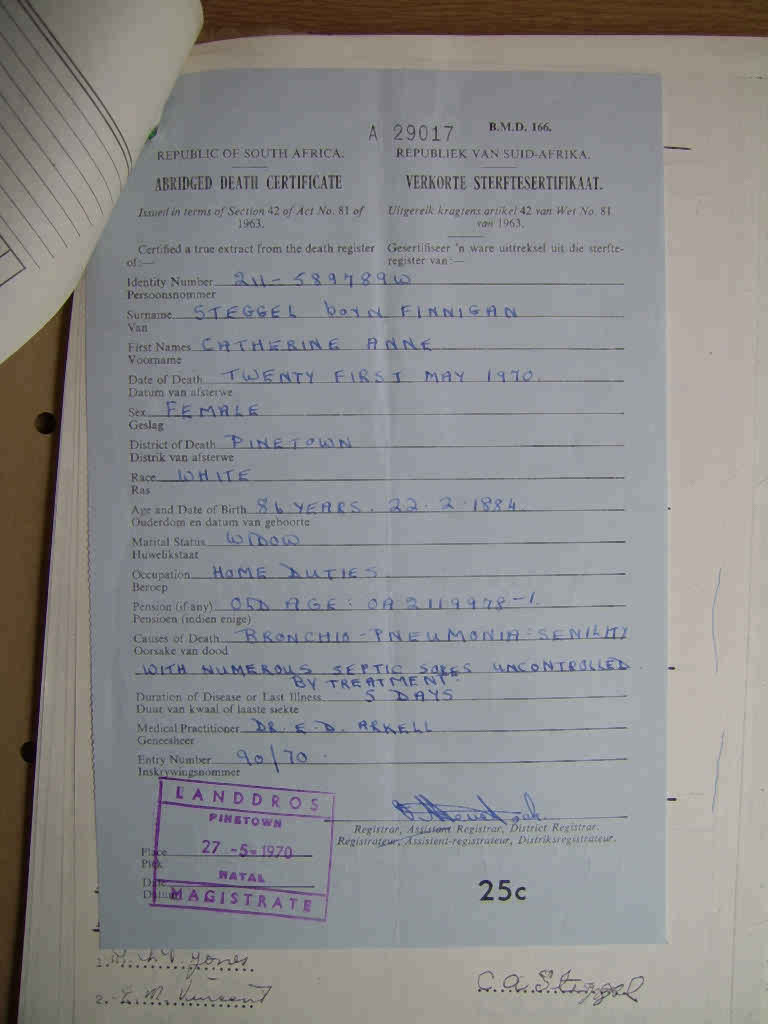 A 29017 B.M.D. 166.
REPUBLIC OF SOUTH AFRICA. REPUBLIEK VAN SUID-AFRIKA.
ABRIDGED DEATH CERTIFICATE VERKORTE STERFTESERTIFIKAAT.
Issued in terms of Section 42 of Act No. 81 of 1963. Uitgereik kragtens artikel 42 van Wet No. 81 van 1963.
Certified a true extract from the death register of:— Gesertifiseer 'n ware uittreksel uit die sterfte-register van:—
Identity Number 211-589789W
Persoonsnommer
Surname STEGGEL born FINNIGAN
Van
First Names CATHERINE ANNE
Voorname
Date of Death TWENTY FIRST MAY 1970.
Datum van afsterwe
Sex FEMALE
Geslag
District of Death PINETOWN
Distrik van afsterwe
Race WHITE
Ras
Age and Date of Birth 86 YEARS. 22.2.1884.
Ouderdom en datum van geboorte
Marital Status WIDOW
Huwelikstaat
Occupation HOME DUTIES
Beroep
Pension (if any) OLD AGE: OA 2119978-1.
Pensioen (indien enige)
Causes of Death BRONCHIO-PNEUMONIA: SENILITY
Oorsake van dood
WITH NUMEROUS SEPTIC SORES UNCONTROLLED
BY TREATMENT.
Duration of Disease or Last Illness 5 DAYS
Duur van kwaal of laaste siekte
Medical Practitioner DR. E. D. ARKELL
Geneesheer
Entry Number 90/70.
Inskrywingsnommer
LANDDROS
PINETOWN
Registrar, Assistant Registrar, District Registrar.
Registrateur, Assistent-registrateur, Distriksregistrateur.
Place 27 -5- 1970
Plek
NATAL
Date
Datum
MAGISTRATE
25c
1. Jones
2. E. M. Vincent C. A. Steggel